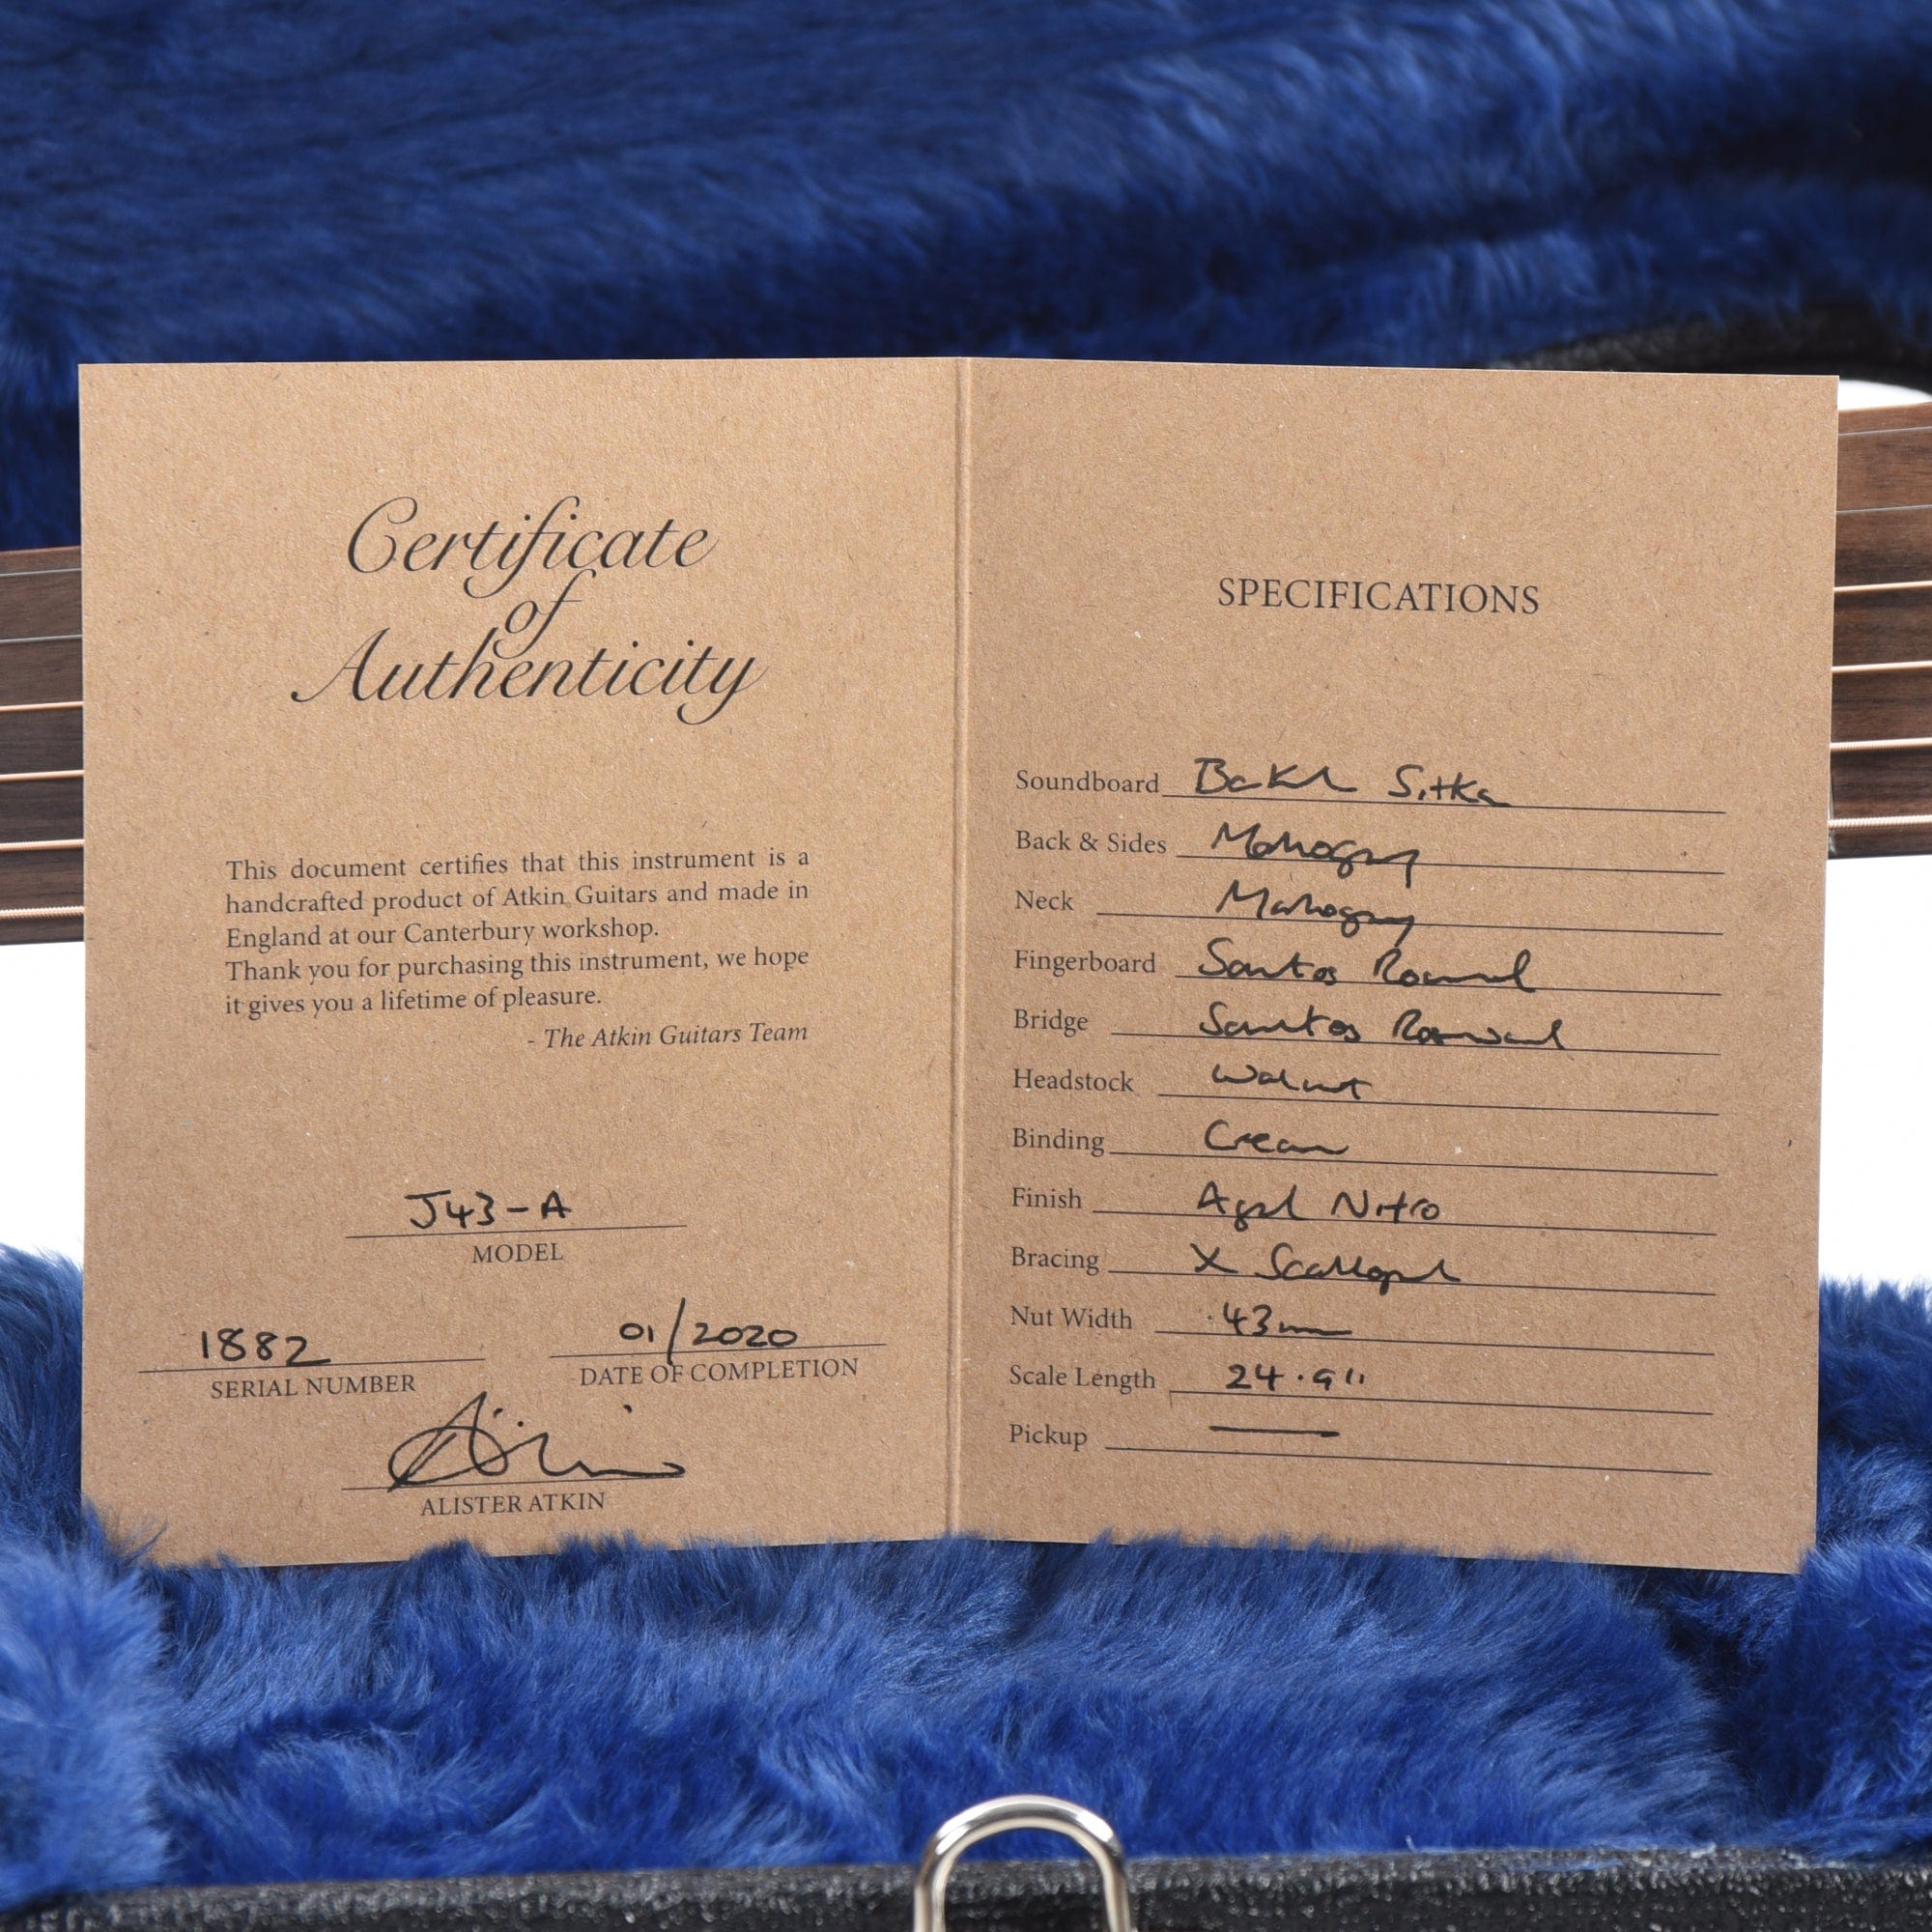 Certificate
of
Authenticity
This document certifies that this instrument is a
handcrafted product of Atkin Guitars and made in
England at our Canterbury workshop.
Thank you for purchasing this instrument, we hope
it gives you a lifetime of pleasure.
- The Atkin Guitars Team
J43-A
MODEL
1882
SERIAL NUMBER
01/2020
DATE OF COMPLETION
ALISTER ATKIN
SPECIFICATIONS
Soundboard Baked Sitka
Back & Sides Mahogany
Neck Mahogany
Fingerboard Santos Rosewood
Bridge Santos Rosewood
Headstock Walnut
Binding Cream
Finish Aged Nitro
Bracing X Scalloped
Nut Width 43mm
Scale Length 24.9"
Pickup —